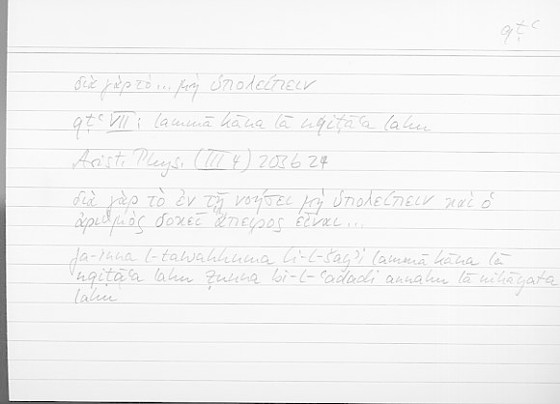 qṭʿ
διὰ γὰρ τὸ... μὴ ὑπολείπειν
qṭʿ VII: lammā kāna lā nqiṭāʿa lahu
Arist. Phys. (III 4) 203b24
διὰ γὰρ τὸ ἐν τῇ νοήσει μὴ ὑπολείπειν καὶ ὁ
ἀριθμὸς δοκεῖ ἄπειρος εἶναι...
fa-inna l-tawahhuma li-l-šayʾi lammā kāna lā
nqiṭāʿa lahu ẓunna bi-l-ʿadadi annahu lā nihāyata
lahu